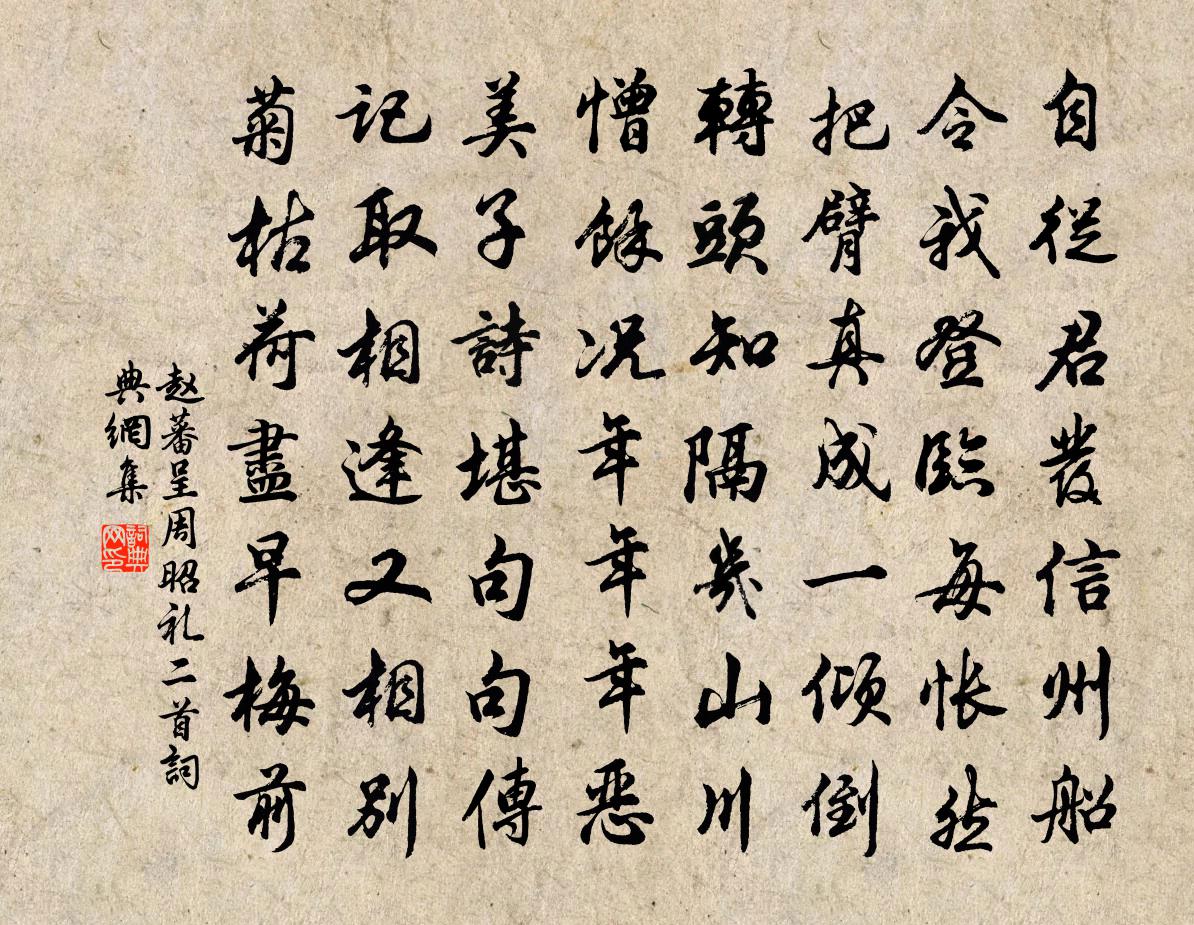 自從君發信州船
令我登臨每悵然
把臂真成一傾倒
轉頭知隔幾山川
憎餘况年年年惡
美子詩堪句句傳
記取相逢又相別
菊枯荷盡早梅前
赵蕃呈周昭礼二首詞
典網集
詞典
网印